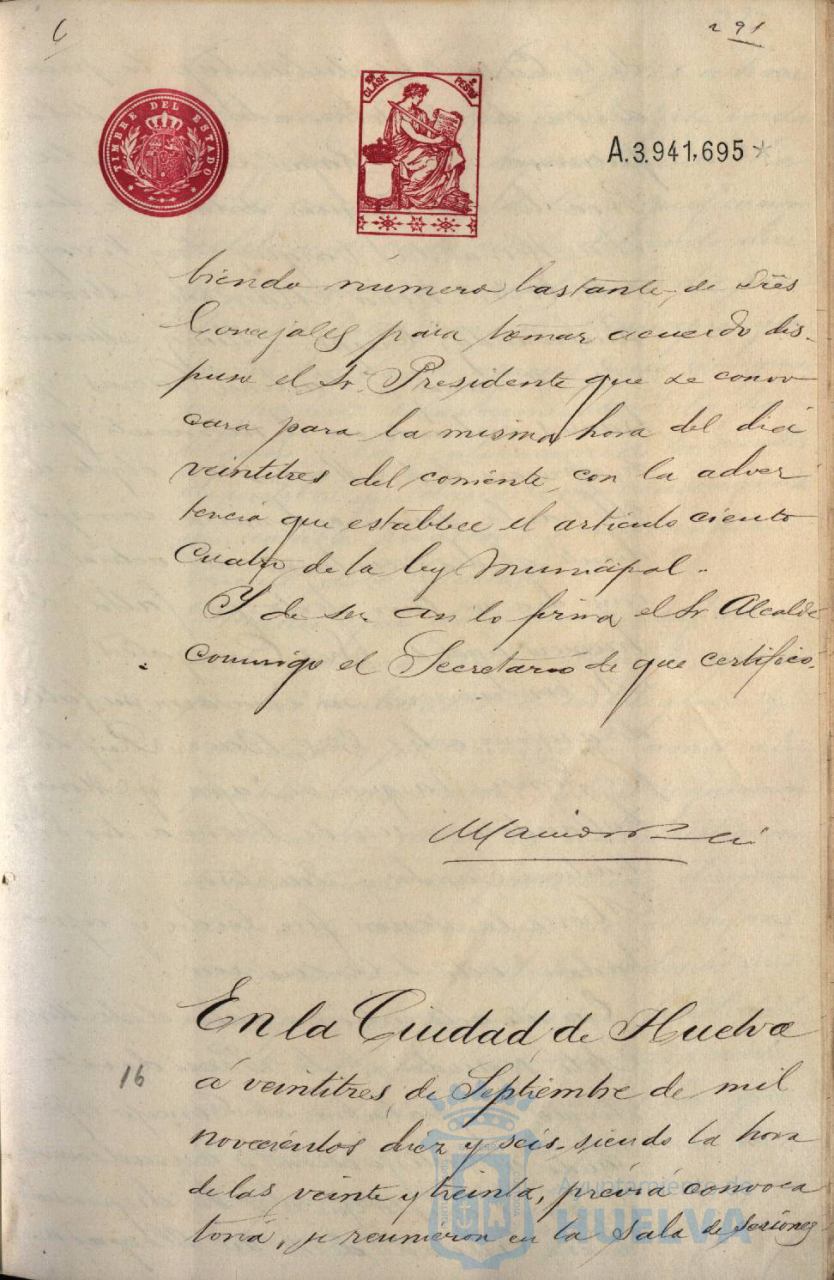 291
TIMBRE DEL ESTADO
CLASE
PESTAS
A.3.941,695*
biendo número bastante, de Sres
Concejales para tomar acuerdo dis-
puso el Sr. Presidente que se convo
cara para la misma hora del dia
veintitres del corriente, con la adver
tencia que establece el articulo ciento
cuatro de la ley Municipal.-
Y de ser asi lo firma el Sr Alcalde
conmigo el Secretario de que certifico.
En la Ciudad de Huelva
16
á veintitres de Septiembre de mil
novecientos diez y seis, siendo la hora
de las veinte y treinta, previa convoca
toria, se reunieron en la Sala de Sesiones
Ayuntamiento de
HUELVA